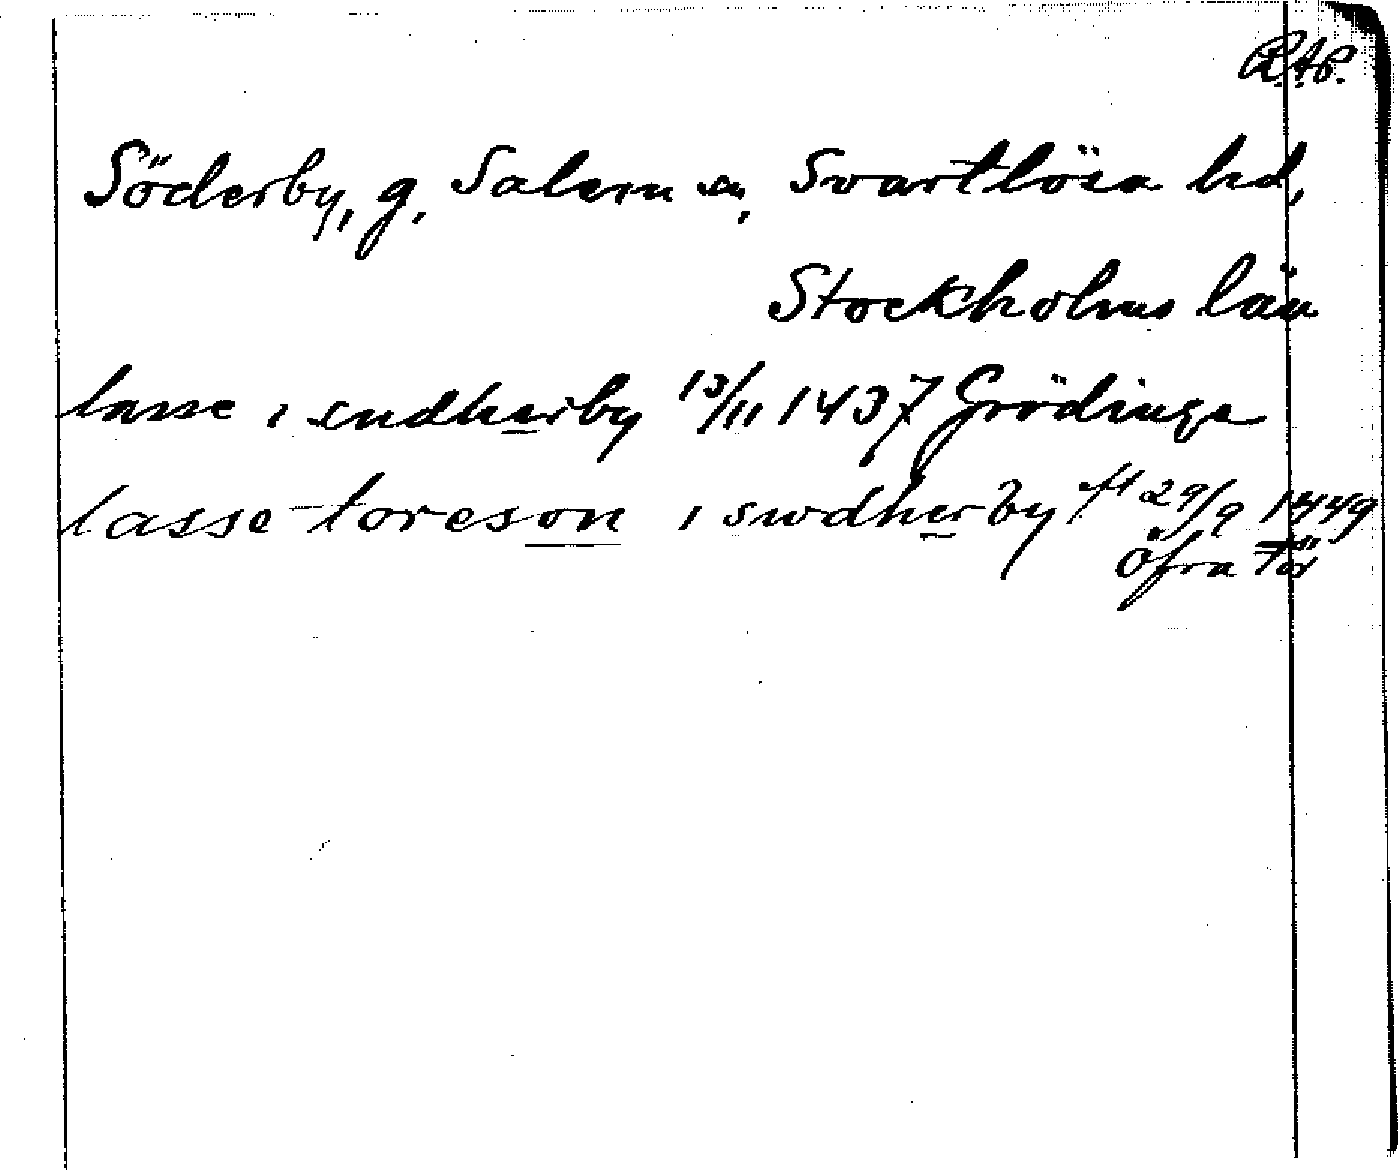 R.A.P.
Söderby, g. Salem sn, Svartlösa hd,
Stockholms län
lasse i sudherby 13/11 1437 Grödinge
lasse toreson i swdherby afl 29/9 1449
Öfra Tör